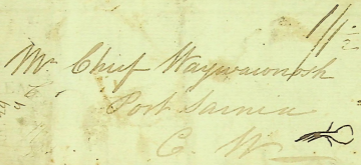 Mr Chief Waywawnosh
Port Sarnia
C. W.